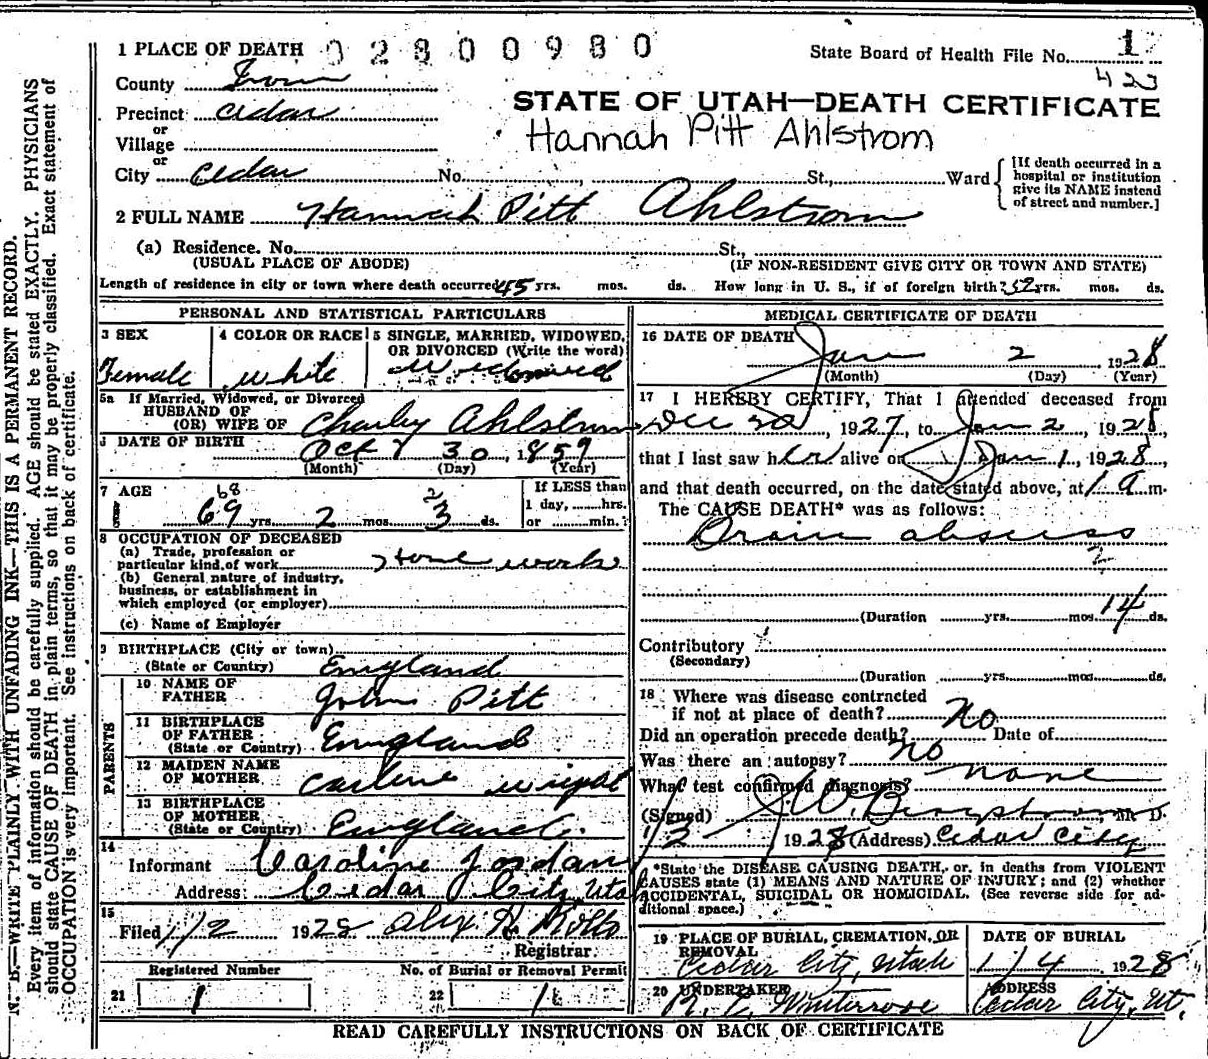 1 PLACE OF DEATH 02800980 State Board of Health File No. 1
423
County Iron
Precinct Cedar
or
Village
or
City Cedar No. , St., Ward
STATE OF UTAH—DEATH CERTIFICATE
Hannah Pitt Ahlstrom
[If death occurred in a
hospital or institution
give its NAME instead
of street and number.]
2 FULL NAME Hannah Pitt Ahlstrom
(a) Residence. No. St.,
(USUAL PLACE OF ABODE) (IF NON-RESIDENT GIVE CITY OR TOWN AND STATE)
Length of residence in city or town where death occurred 45 yrs. mos. ds. How long in U. S., if of foreign birth? 52 yrs. mos. ds.
PERSONAL AND STATISTICAL PARTICULARS
3 SEX
Female
4 COLOR OR RACE
White
5 SINGLE, MARRIED, WIDOWED,
OR DIVORCED (Write the word)
Widowed
5a If Married, Widowed, or Divorced
HUSBAND OF
(OR) WIFE OF Charley Ahlstrom
6 DATE OF BIRTH Oct 30, 1859
(Month) (Day) (Year)
7 AGE 68 2
69 yrs. 2 mos. 3 ds.
If LESS than
1 day, hrs.
or min.
8 OCCUPATION OF DECEASED
(a) Trade, profession or
particular kind of work Home work
(b) General nature of industry,
business, or establishment in
which employed (or employer)
(c) Name of Employer
9 BIRTHPLACE (City or town)
(State or Country) England
PARENTS
10 NAME OF
FATHER John Pitt
11 BIRTHPLACE
OF FATHER
(State or Country) England
12 MAIDEN NAME
OF MOTHER Carline Wright
13 BIRTHPLACE
OF MOTHER
(State or Country) England
14
Informant Caroline Jordan
Address: Cedar City Utah
15
Filed 1/2 1928 Alex H. Rollo
Registrar.
Registered Number No. of Burial or Removal Permit
21 1 22 1
MEDICAL CERTIFICATE OF DEATH
16 DATE OF DEATH
Jan 2 1928
(Month) (Day) (Year)
17 I HEREBY CERTIFY, That I attended deceased from
Dec 20, 1927, to Jan 2, 1928,
that I last saw her alive on Jan 1, 1928,
and that death occurred, on the date stated above, at 1 a m.
The CAUSE DEATH* was as follows:
Brain abscess
(Duration yrs. mos. 14 ds.
Contributory
(Secondary)
(Duration yrs. mos. ds.
18 Where was disease contracted
if not at place of death? No
Did an operation precede death? no Date of
Was there an autopsy?
What test confirmed diagnosis? none
(Signed) J. W. Bergstrom M. D.
1/2 1928 (Address) Cedar City
*State the DISEASE CAUSING DEATH, or, in deaths from VIOLENT
CAUSES state (1) MEANS AND NATURE OF INJURY; and (2) whether
ACCIDENTAL, SUICIDAL OR HOMICIDAL. (See reverse side for ad-
ditional space.)
19 PLACE OF BURIAL, CREMATION, OR
REMOVAL
Cedar City, Utah
DATE OF BURIAL
1/4 1928
20 UNDERTAKER
R. C. Winterrose
ADDRESS
Cedar City, Ut.
READ CAREFULLY INSTRUCTIONS ON BACK OF CERTIFICATE
N. B.—WRITE PLAINLY WITH UNFADING INK—THIS IS A PERMANENT RECORD.
Every item of information should be carefully supplied. AGE should be stated EXACTLY. PHYSICIANS
should state CAUSE OF DEATH in plain terms, so that it may be properly classified. Exact statement of
OCCUPATION is very important. See instructions on back of certificate.